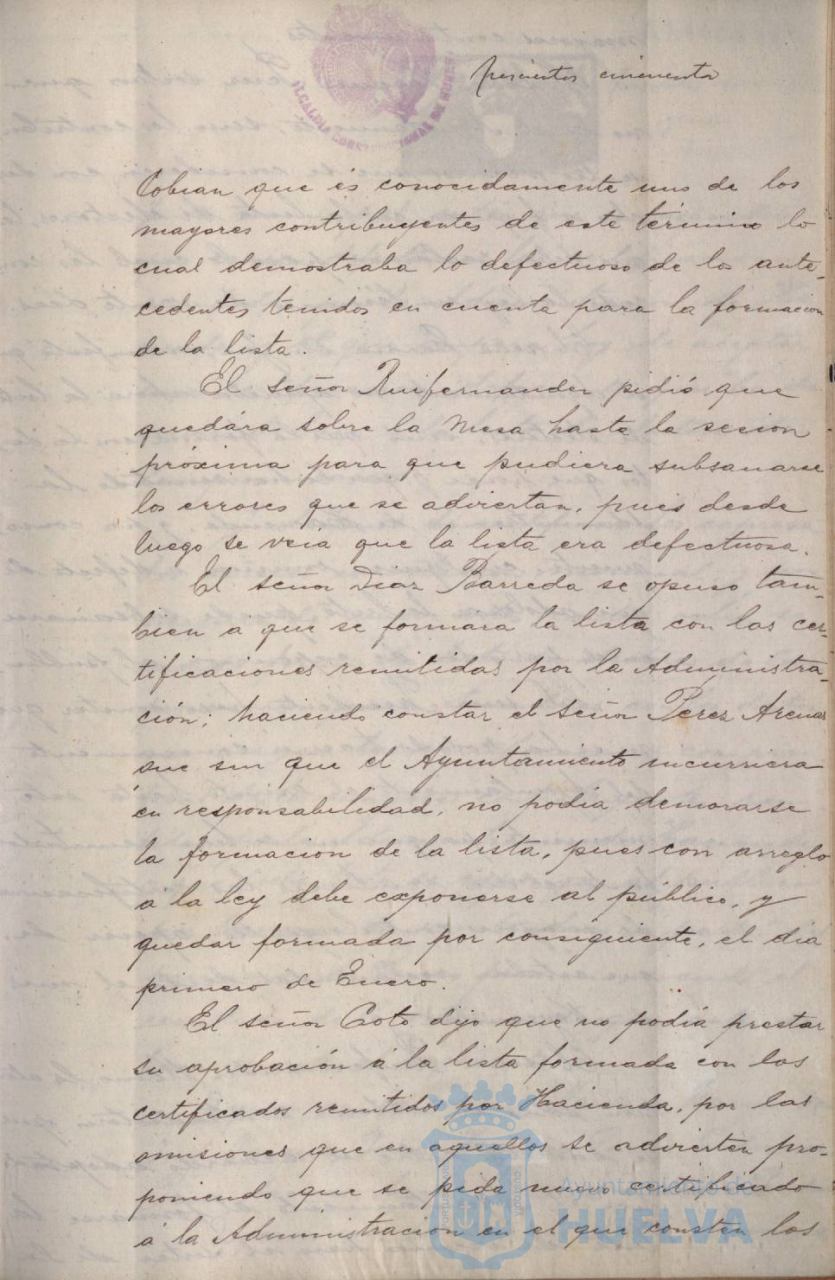 cincuenta
ALCALDIA CONSTITUCIONAL DE HUELVA
Cobian que és conocidamente uno de los
mayores contribuyentes de este término lo
cual demostraba lo defectuoso de los ante-
cedentes tenidos en cuenta para la formacion
de la lista.
El señor Ruifernandez pidió que
quedára sobre la Mesa hasta la sesion
próxima para que pudiera subsanarse
los errores que se adviertan, pues desde
luego se veia que la lista era defectuosa.
El señor Diaz Barreda se opuso tam-
bien a que se formára la lista con las cer-
tificaciones remitidas por la Administra-
ción; haciendo constar el señor Perez Arenas
que sin que el Ayuntamiento incurriera
en responsabilidad, no podia demorarse
la formacion de la lista, pues con arreglo
á la ley debe exponerse al público, y
quedar formada por consiguiente, el dia
primero de Enero.
El señor Coto dijo que no podía prestar
su aprobación á la lista formada con los
certificados remitidos por Hacienda, por las
omisiones que en aquellos se advierten pro-
poniendo que se pida nuevo certificado
á la Administracion en el que consten los
Ayuntamiento de
HUELVA